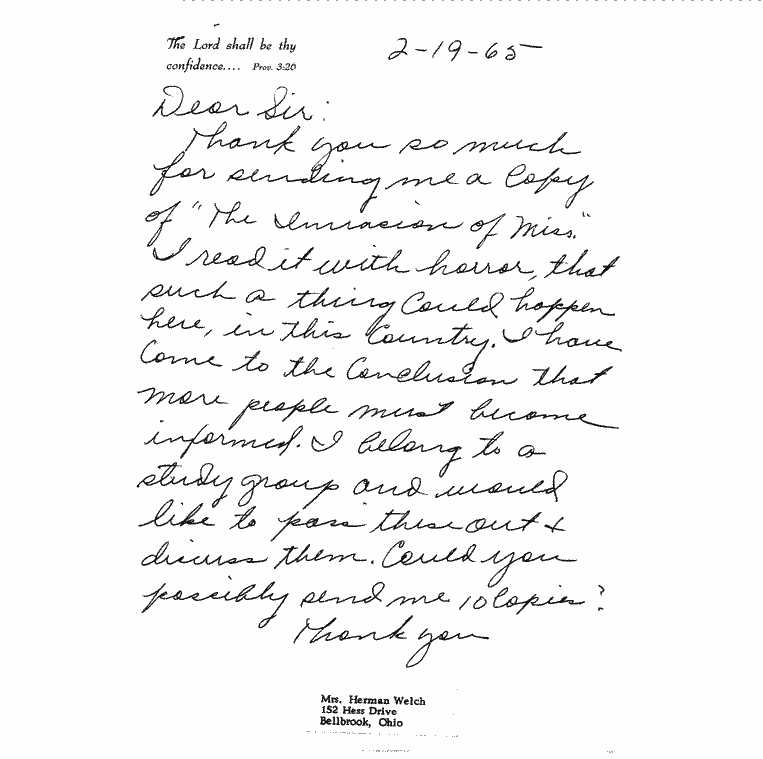 The Lord shall be thy
confidence.... Prov. 3:26
2-19-65
Dear Sir:
Thank you so much
for sending me a Copy
of "The Invasion of Miss."
I read it with horror, that
such a thing Could happen
here, in this Country. I have
Come to the Conclusion that
more people must become
informed. I belong to a
study group and would
like to pass these out &
discuss them. Could you
possibly send me 10 Copies?
Thank you
Mrs. Herman Welch
152 Hess Drive
Bellbrook, Ohio